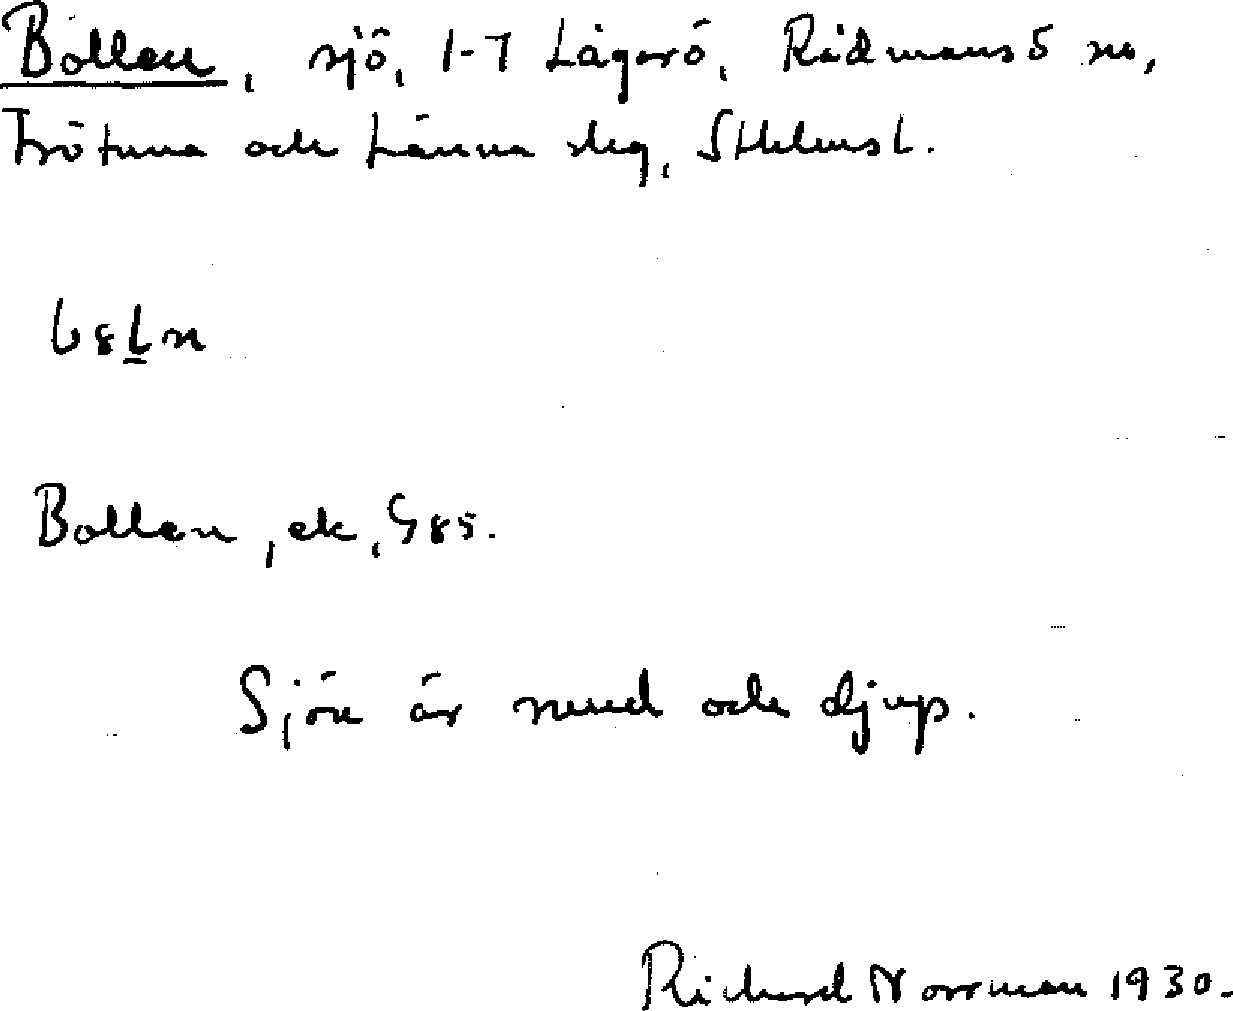 Bollen, sjö, 1-7 Lågarö, Rådmansö sn,
Frötuna och Länna slg, Sthlms l.
Bollen, ek, G 85.
Sjön är rund och djup.
Richard Norrman 1930.